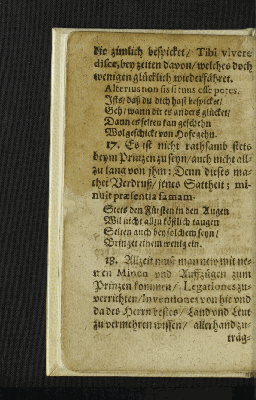 die zimlich bespicket / Tibi vivere
disce, bey zeiten davon / welches doch
wenigen glücklich wiederfähret.
Alterius non sis si tuus esse potes.
Ists / daß du dich hast bespicket /
Geh / wann dir es anders glücket /
Dann es selten kan geschehn
Wolgeschickt von Hofe gehn.
17. Es ist nicht rathsamb stets
beym Printzen zu seyn / auch nicht all-
zu lang von ihm: Denn dieses ma-
chet Verdruß / jenes Sattheit; mi-
nuit præsentia famam.
Stets den Fürsten in den Augen
Wil nicht allzu köstlich taugen
Selten auch bey solchem seyn /
Bringet einem wenig ein.
18. Allzeit muß man new mit ne-
wen Minen und Auffzügen zum
Prinzen kommen / Legationes zu-
verrichten / Inventiones von hie und
da des Herrn bestes / Land und Leut
zu vermehren wissen / allerhand zu-
träg-